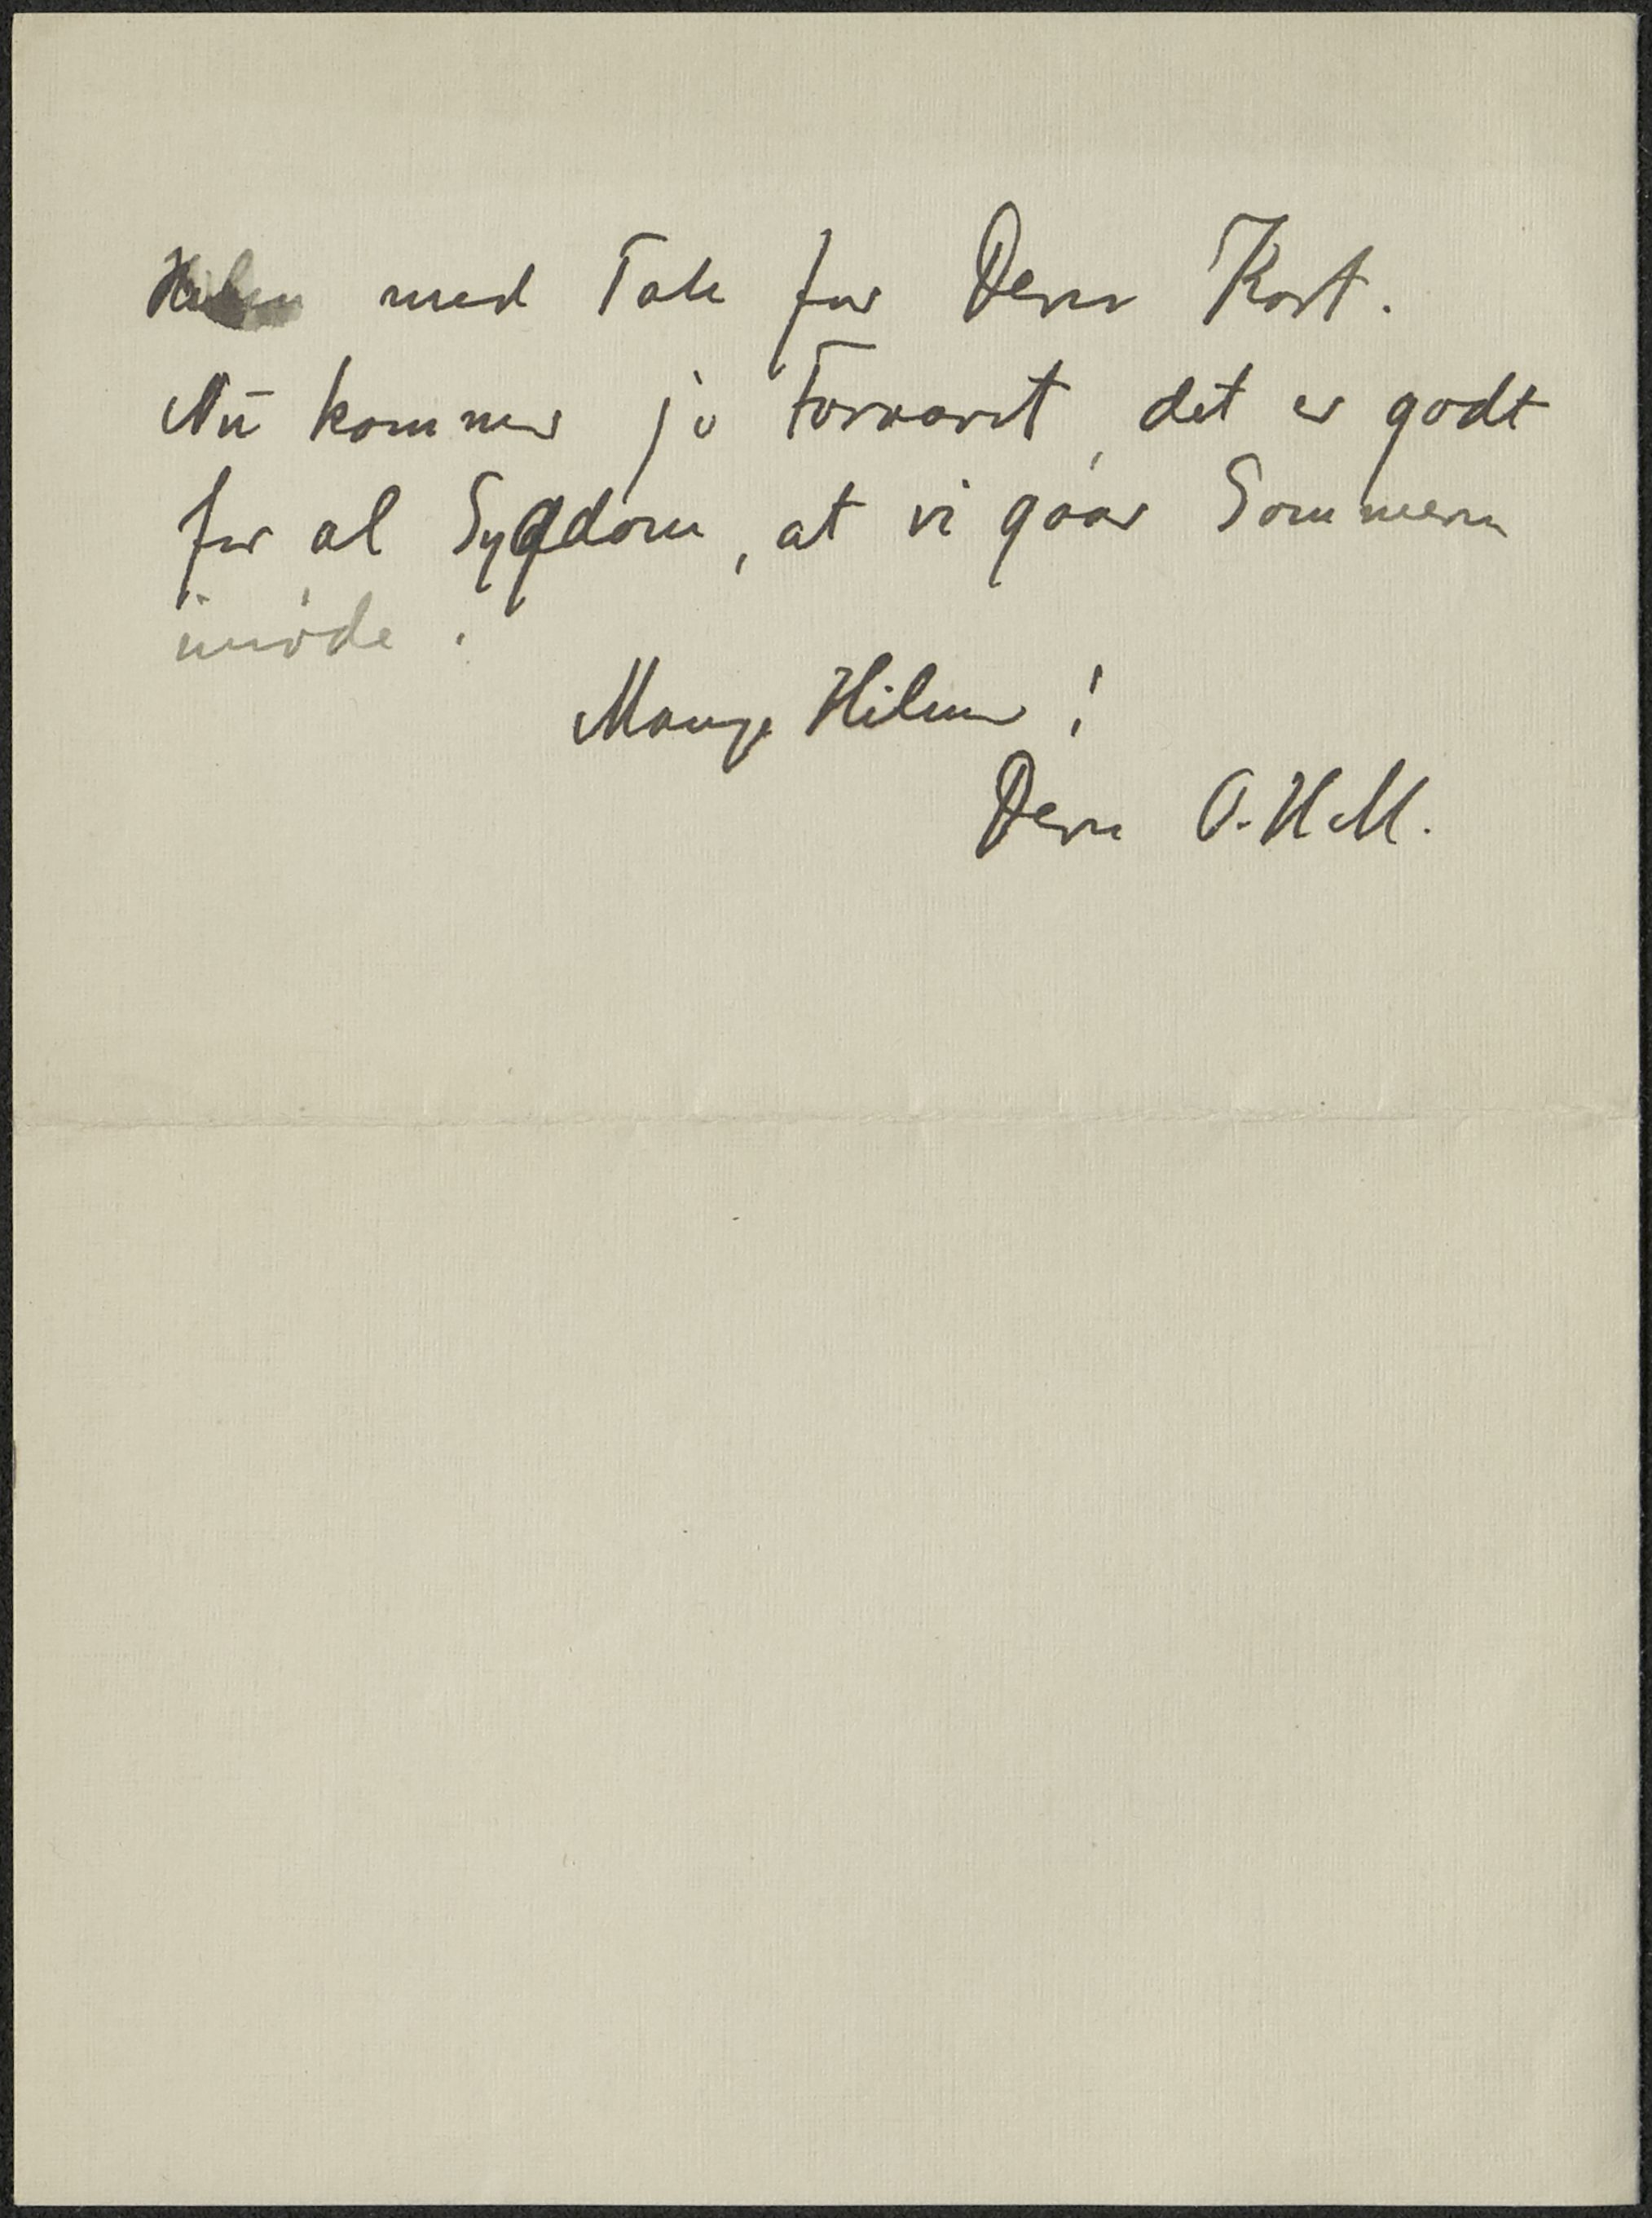 Hilsen med Tak for Deres Kort.
Nu kommer jo Foraaret, det er godt
for al Sygdom, at vi gaar Sommeren
imøde.
Mange Hilsner!
Deres O. H. M.